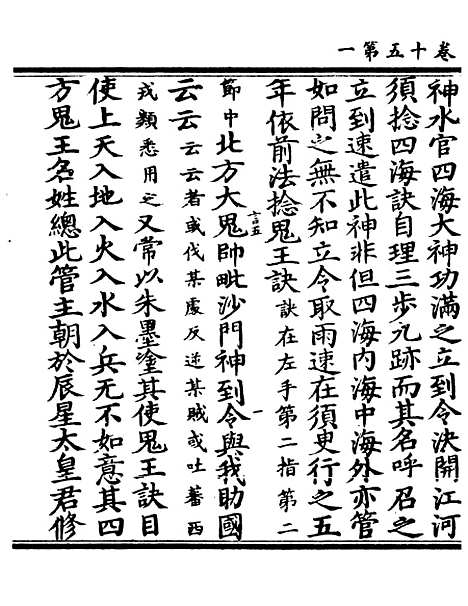 卷十五第一
神水官四海大神功滿之立到令決開江河
須捻四海訣自理三步九跡而其名呼召之
立到速遣此神非但四海內海中海外亦管
如問之無不知立令取雨速在須臾行之五
年依前法捻鬼王訣訣在左手第二指第二
節中北方大鬼帥毗沙門神到令與我助國
云云云云者或伐某處反逆某賊或吐蕃西
戎類悉用之又常以朱墨塗其使鬼王訣目
使上天入地入火入水入兵无不如意其四
方鬼王名姓總此管主朝於辰星太皇君修